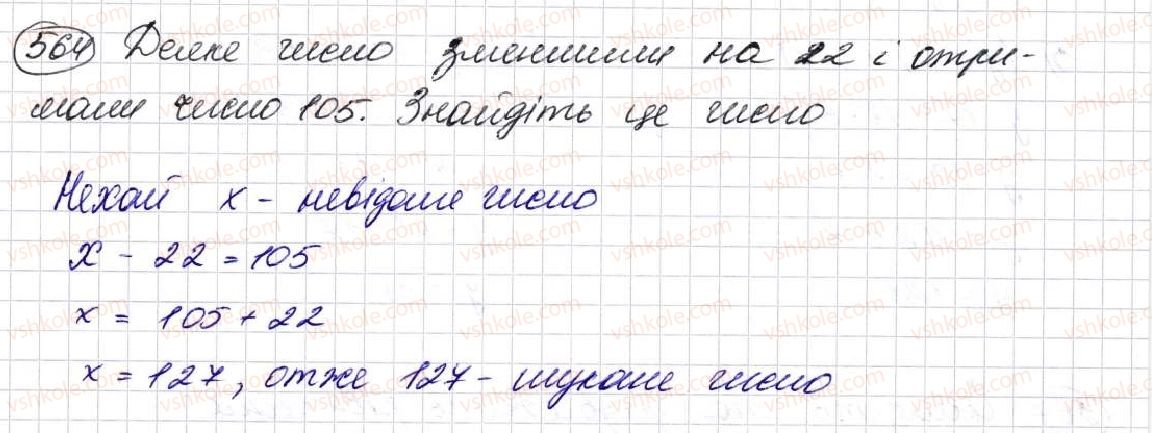 564 Деяке число зменшили на 22 і отри-
мали число 105. Знайдіть це число
Нехай x - невідоме число
x - 22 = 105
x = 105 + 22
x = 127, отже 127 - шукане число